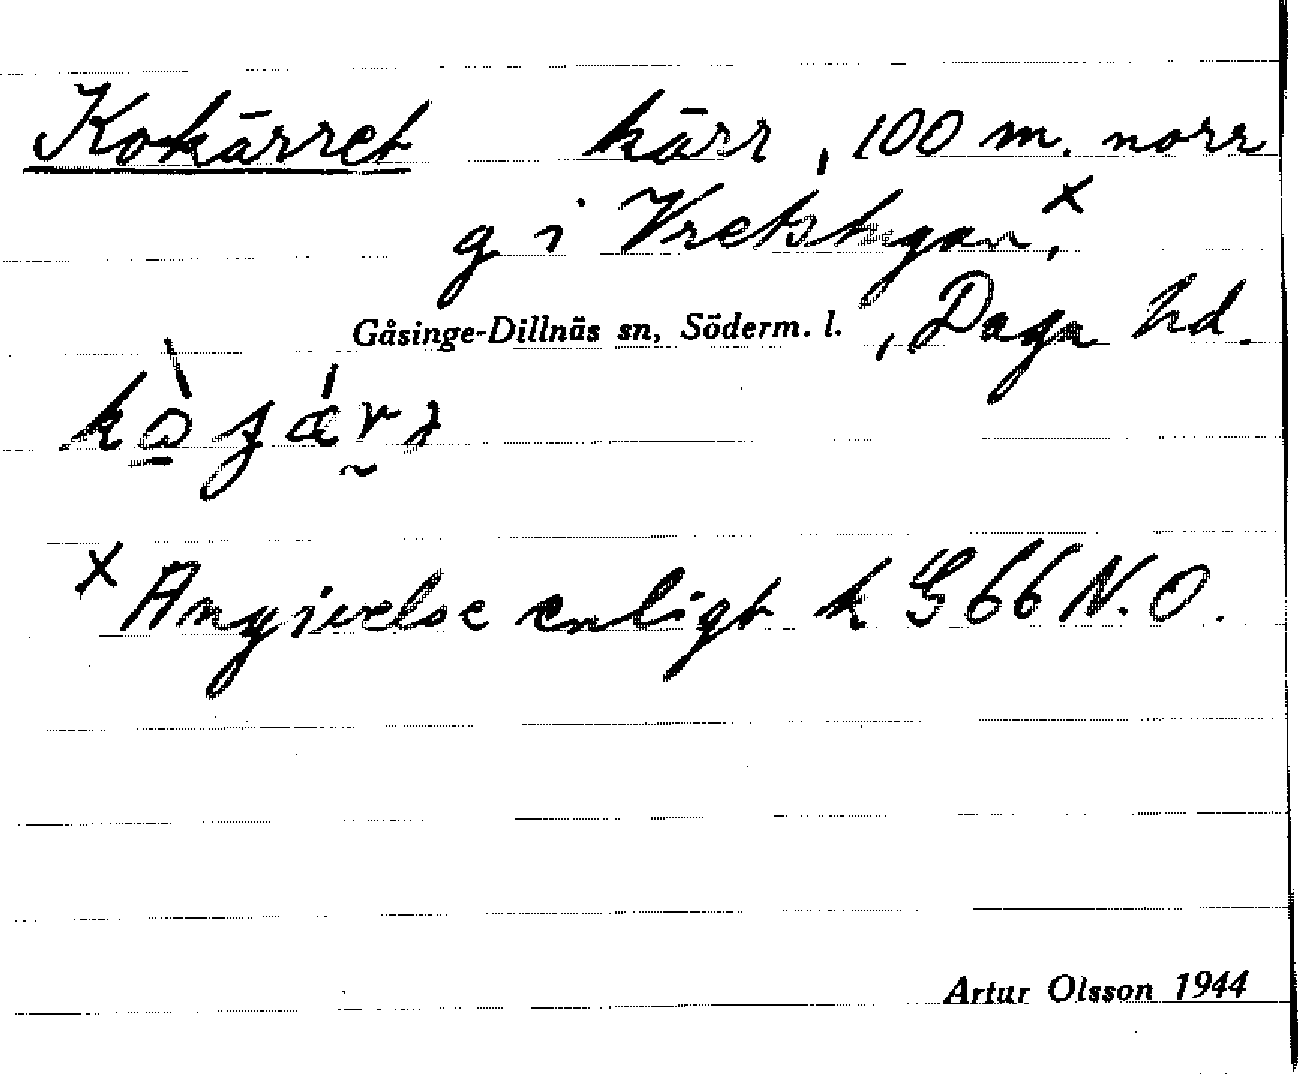 Kokärret kärr, 100 m. norr
g i Vretstugan,x
Gåsinge-Dillnäs sn, Söderm. l., Daga hd.
x Angivelse enligt k G 66 N.O.
Artur Olsson 1944